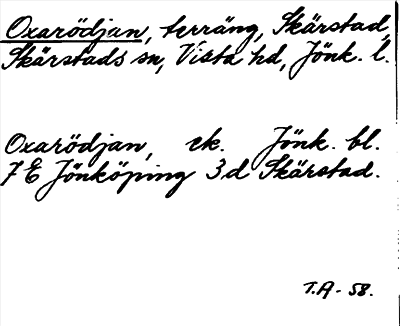 Oxarödjan, terräng, Skärstad,
Skärstads sn, Vista hd, Jönk. l.
Oxarödjan, ek. Jönk. bl.
7 E Jönköping 3d Skärstad.
T.A - 58.